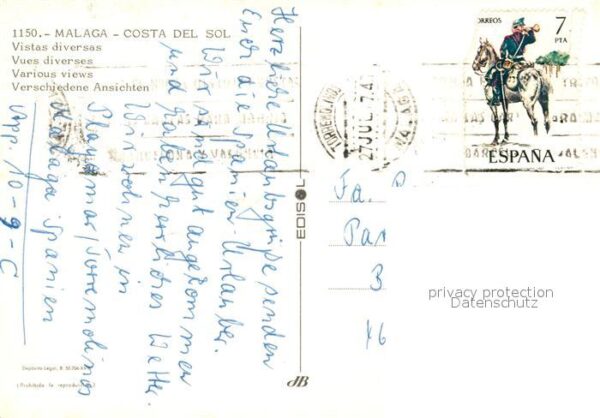 1150.- MALAGA - COSTA DEL SOL
Vistas diversas
Vues diverses
Various views
Verschiedene Ansichten
Herzliche Urlaubsgrüße senden
Euch die Spanien-Urlauber.
Wir sind gut angekommen
und haben herrliches Wetter.
Wir wohnen in
Playamar/Torremolinos
Malaga Spanien
App. 10-9-C
Deposito Legal, B.
(Prohibida la reproducción)
EDISOL
JB
CORREOS
7
PTA
ESPAÑA
27 JUL 74
Fa.
Par
3
privacy protection
Datenschutz